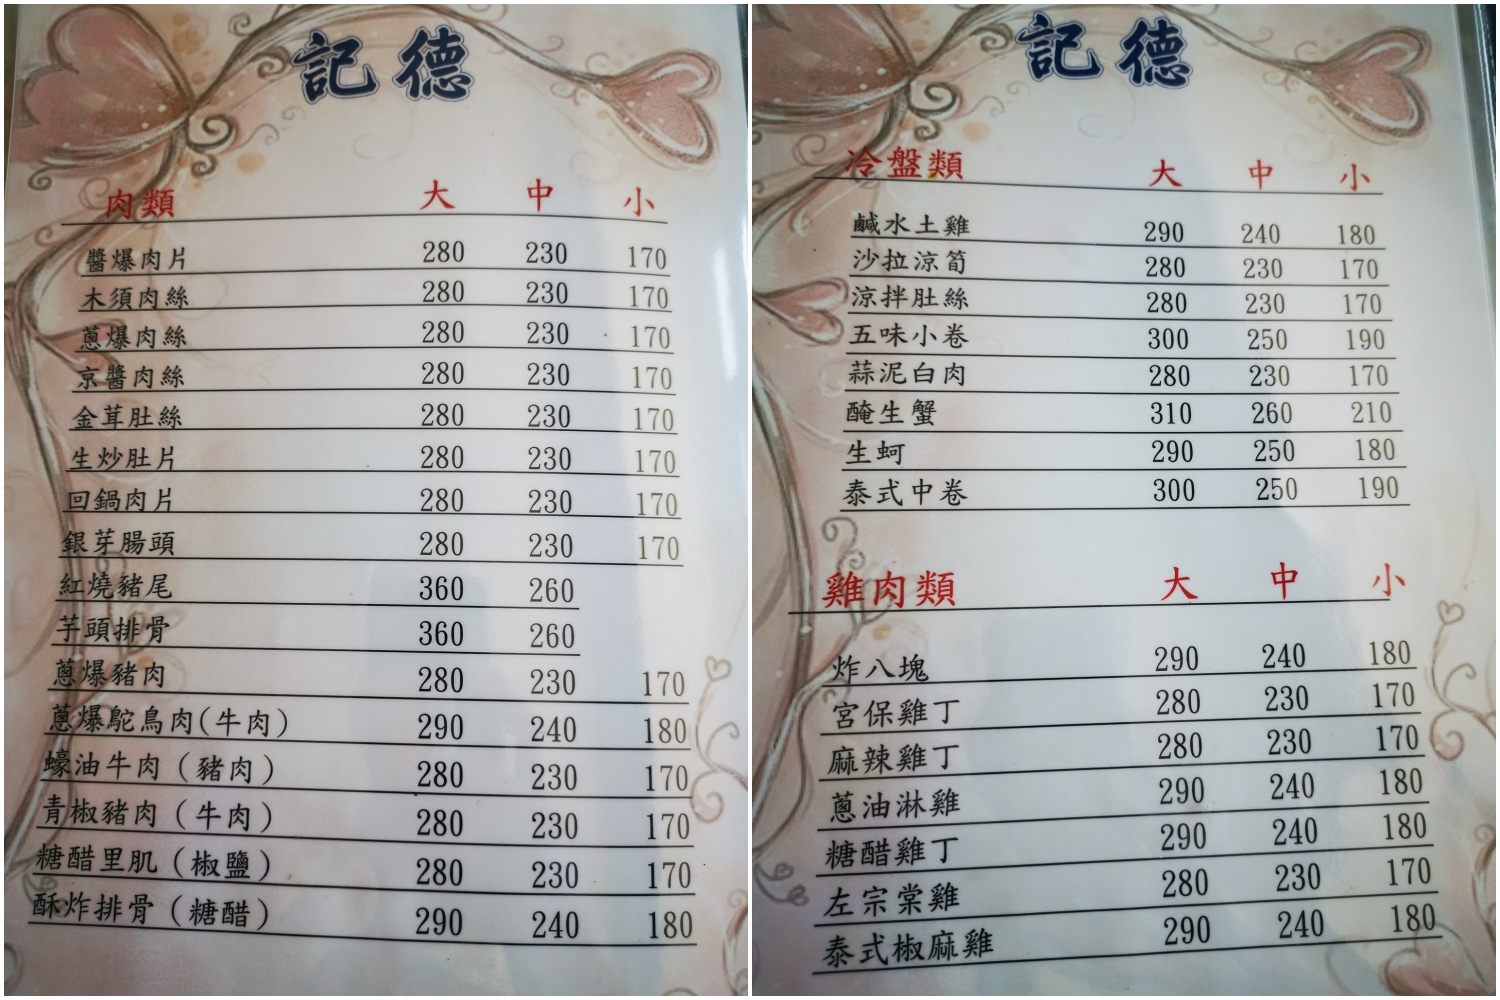 記德
肉類 大 中 小
醬爆肉片 280 230 170
木須肉絲 280 230 170
蔥爆肉絲 280 230 170
京醬肉絲 280 230 170
金茸肚絲 280 230 170
生炒肚片 280 230 170
回鍋肉片 280 230 170
銀芽腸頭 280 230 170
紅燒豬尾 360 260
芋頭排骨 360 260
蔥爆豬肉 280 230 170
蔥爆鴕鳥肉(牛肉) 290 240 180
蠔油牛肉(豬肉) 280 230 170
青椒豬肉(牛肉) 280 230 170
糖醋里肌(椒鹽) 280 230 170
酥炸排骨(糖醋) 290 240 180
記德
冷盤類 大 中 小
鹹水土雞 290 240 180
沙拉涼筍 280 230 170
涼拌肚絲 280 230 170
五味小卷 300 250 190
蒜泥白肉 280 230 170
醃生蟹 310 260 210
生蚵 290 250 180
泰式中卷 300 250 190
雞肉類 大 中 小
炸八塊 290 240 180
宮保雞丁 280 230 170
麻辣雞丁 280 230 170
蔥油淋雞 290 240 180
糖醋雞丁 290 240 180
左宗棠雞 280 230 170
泰式椒麻雞 290 240 180